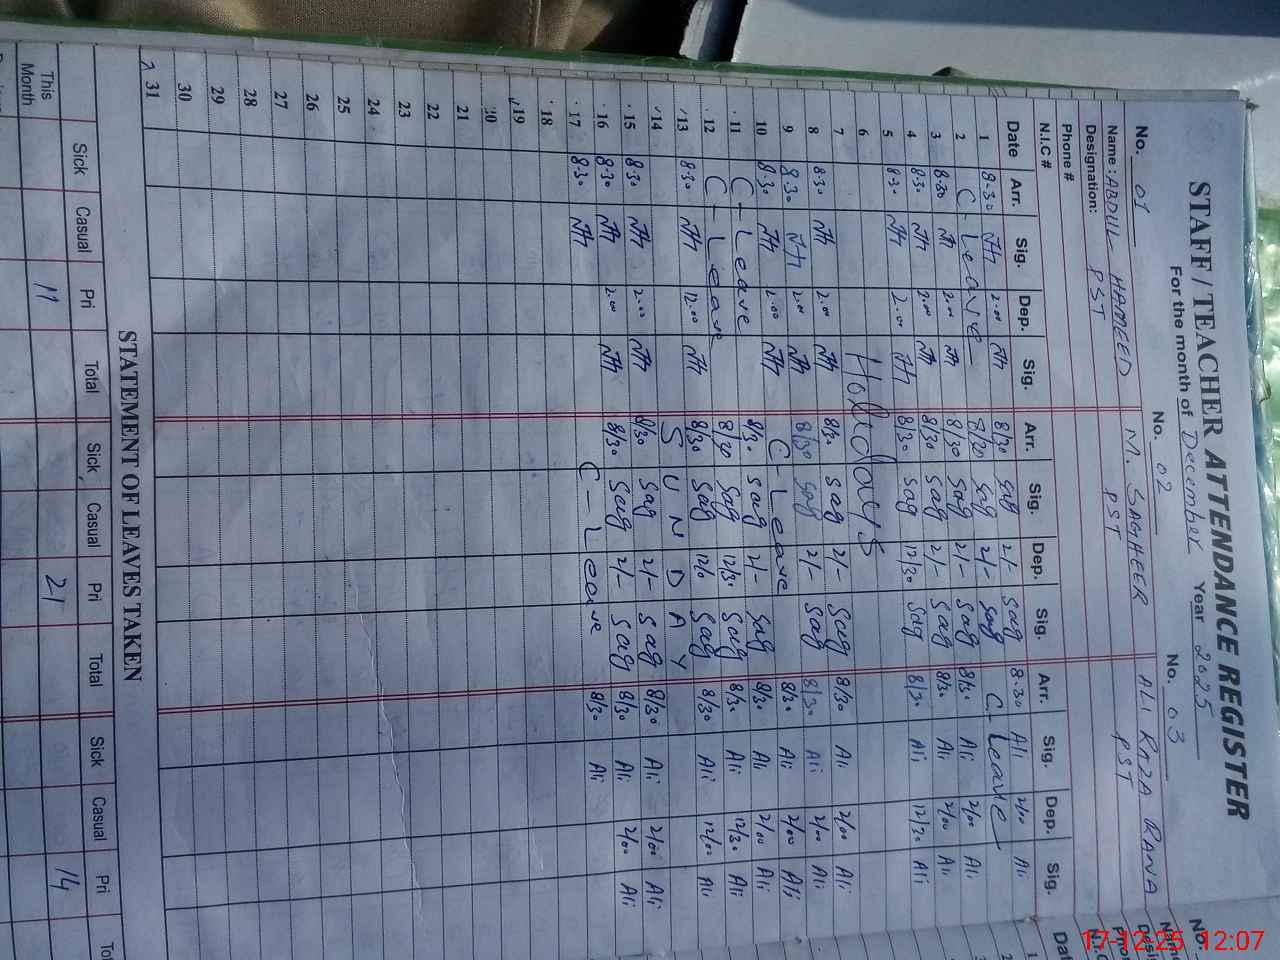 STAFF / TEACHER ATTENDANCE REGISTER
For the month of December Year 2025
No. 01 No. 02 No. 03
Name : ABDUL HAMEED M. SAGHEER ALI RAZA RANA
Designation: PST PST PST
Phone #
N.I.C #
Date Arr. Sig. Dep. Sig. Arr. Sig. Dep. Sig. Arr. Sig. Dep. Sig.
1 8.30 2.00 8/30 Sag 2/- Sag 8.30 Ali 2/00 Ali
2 C-Leave 8/20 Sag 2/- Sag C-Leave
3 8.30 2.00 8/30 Sag 2/- Sag 8/30 Ali 2/00 Ali
4 8.30 2.00 8/30 Sag 2/- Sag 8/30 Ali 2/00 Ali
5 8.30 2.00 8/30 Sag 12/30 Sag 8/30 Ali 12/30 Ali
6 Holidays
7
8 8.30 2.00 8/30 Sag 2/- Sag 8/30 Ali 2/00 Ali
9 8.30 2.00 8/30 Sag 2/- Sag 8/30 Ali 2/00 Ali
10 8.30 2.00 C-Leave 8/30 Ali 2/00 Ali
11 C-Leave 8/30 Sag 2/- Sag 8/30 Ali 2/00 Ali
12 C-Leave 8/30 Sag 12/30 Sag 8/30 Ali 12/30 Ali
13 8.30 12.00 8/30 Sag 12/0 Sag 8/30 Ali 12/00 Ali
14 SUNDAY
15 8.30 2.00 8/30 Sag 2/- Sag 8/30 Ali 2/00 Ali
16 8.30 2.00 8/30 Sag 2/- Sag 8/30 Ali 2/00 Ali
17 8.30 C-Leave 8/30 Ali
18
19
20
21
22
23
24
25
26
27
28
29
30
31
STATEMENT OF LEAVES TAKEN
Sick Casual Pri Total Sick Casual Pri Total Sick Casual Pri
This Month 11 21 14
17-12-25 12:07